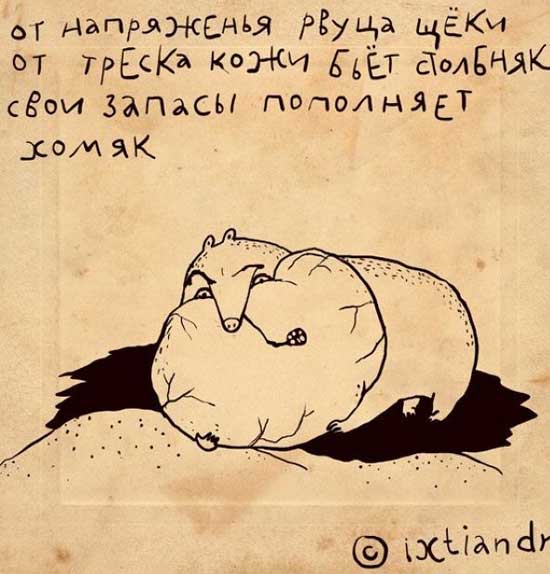 от напряженья рвуца щёки
от треска кожи бьёт столбняк
свои запасы пополняет
хомяк
© ixtiandr